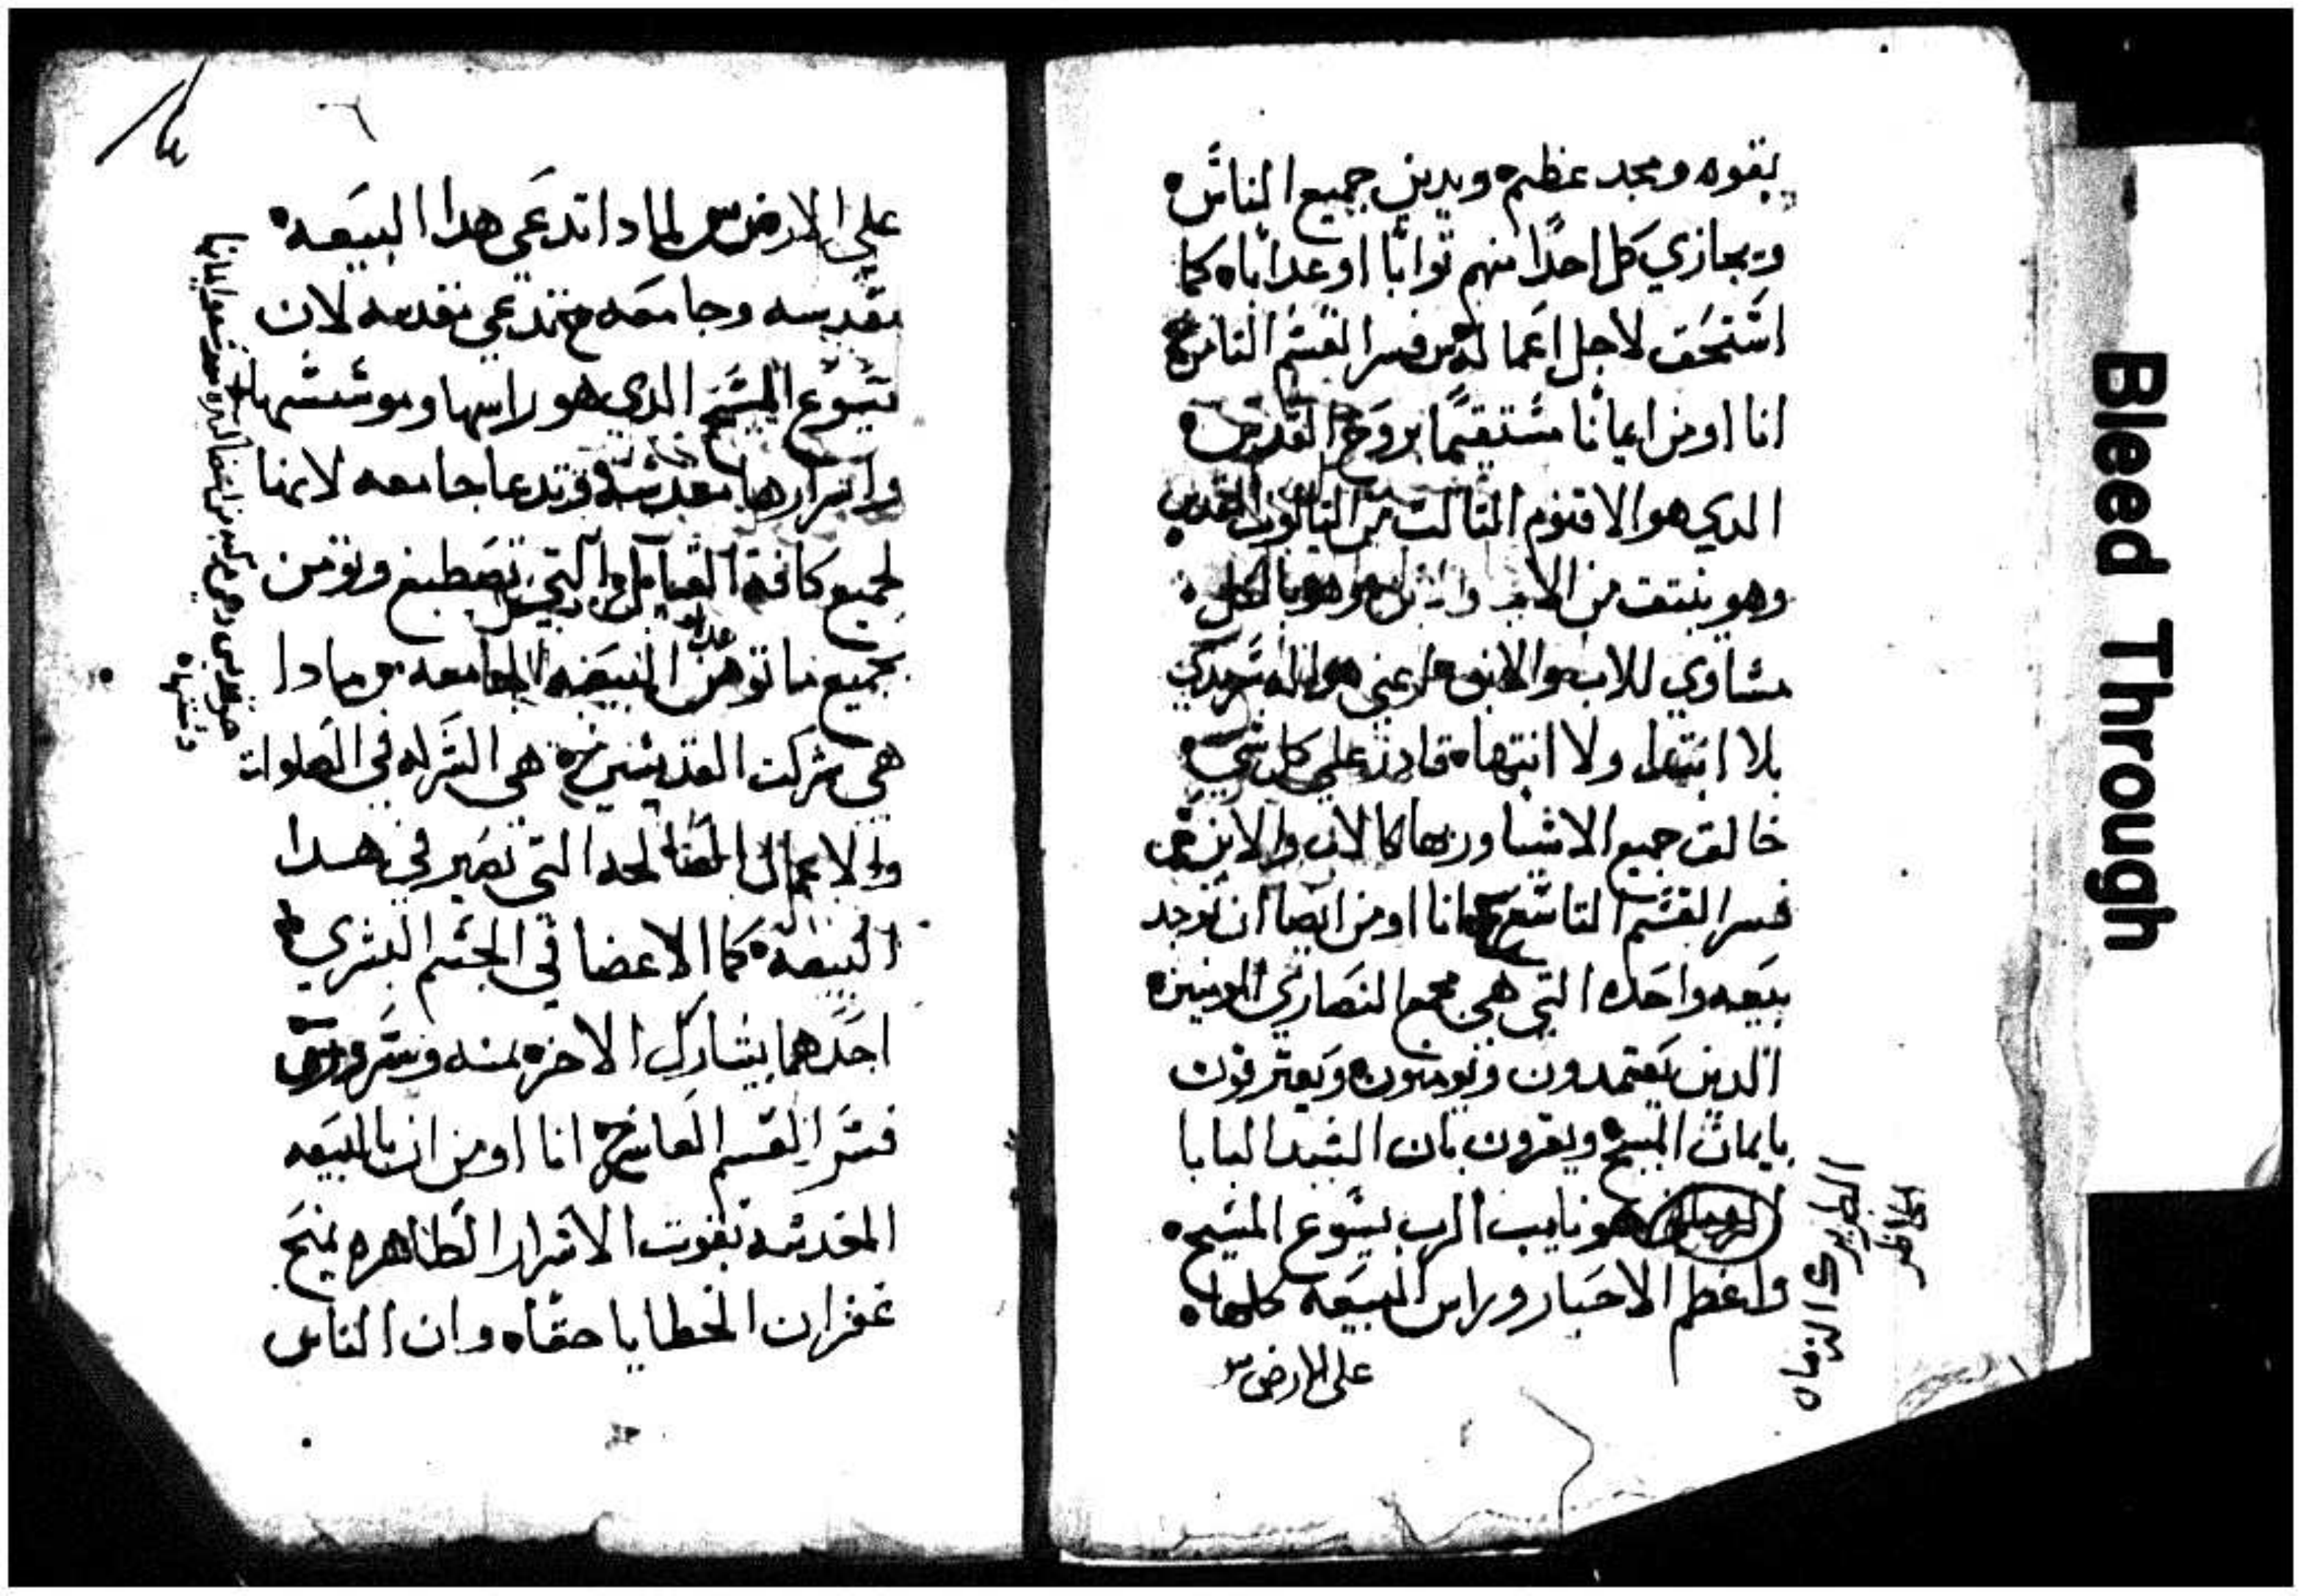 بقوه ومجد عظيم ويدين جميع الناس
ويجازي كل احدًا منهم توابًا او عدابًا كما
استحق لاجل اعماله س فسر القسم التامن ج
انا اومن ايمانًا مستقيمًا بروح القدس
الدي هو الاقنوم التالت من التالوت القدس
وهو ينبتق من الاب والابن وهو بالكل
مساوي للاب والابن اعني هو اله سرمدي
بلا ابتدا ولا انتها قادر علي كل شي
خالق جميع الاشيا وربها كالاب والابن س
فسر القسم التاسع ج انا اومن ايضا ان توجد
بيعه واحده التي هي مجمع النصاري المومنين
الدين يعتمدون ويومنون ويعترفون
بايمان المسيح ويقرون بان السيد البابا
الروماني هو نايب الرب يسوع المسيح
واعظم الاحبار وراس البيعه كلها
على الارض س
علي الارض س لمادا تدعي هدا البيعه
مقدسه وجامعه ج تدعي مقدسه لان
يسوع المسيح الدي هو راسها وموسسها
واسرارها مقدسه وتدعا جامعه لانها
لجميع كافة القبايل التي تصطبغ وتومن
بجميع ما تومن البيعه الجامعه س مادا
هي شركت القديسين ج هي الشركه في الصلوات
والاعمال الصالحه التي تصير في هدا
البيعه كما الاعضا في الجسم البشري
احدهما يشارك الاخر
فسر القسم العاشر ج انا اومن ان بالبيعه
المقدسه بقوت الاسرار الطاهره يمنح
غفران الخطايا حقًا وان الناس
Bleed Through